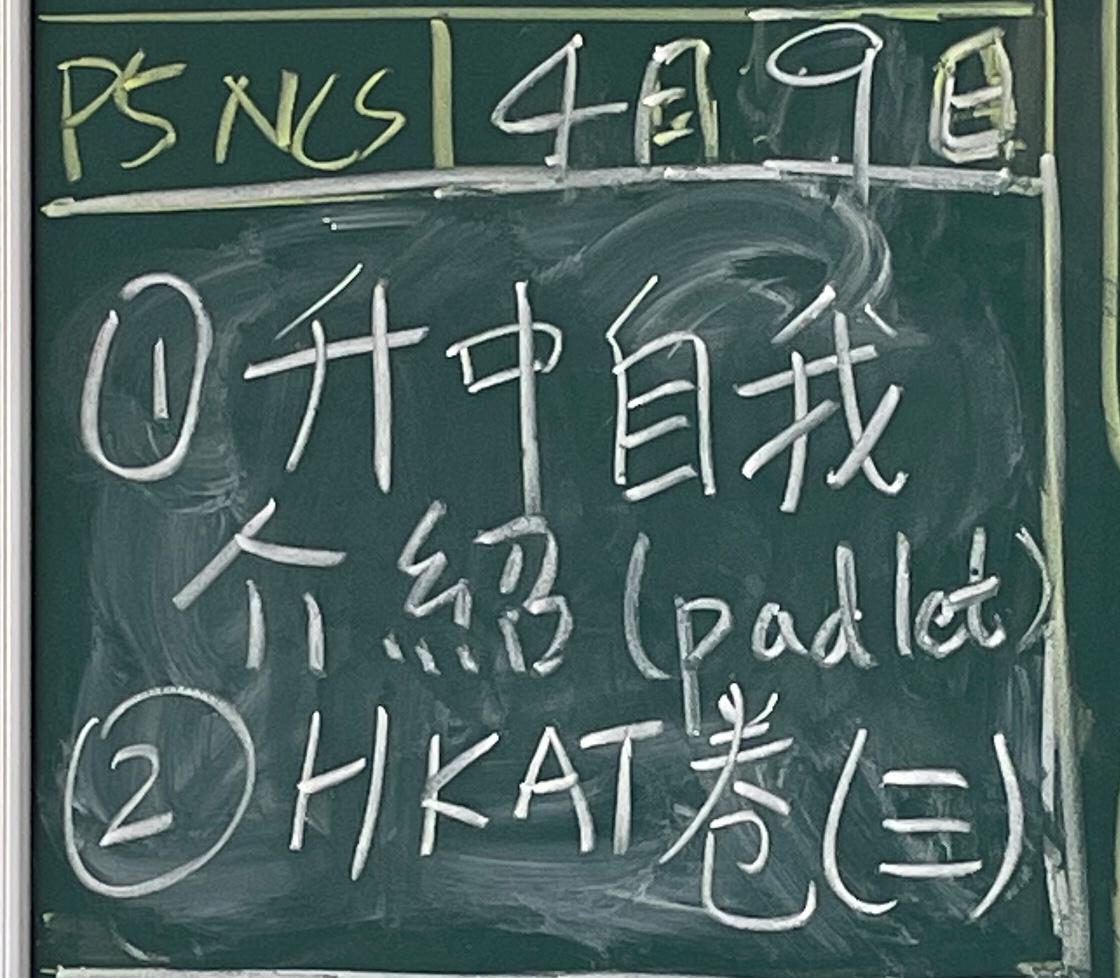 P5 NCS 4月9日
① 升中自我
介紹(padlet)
② HKAT卷(三)